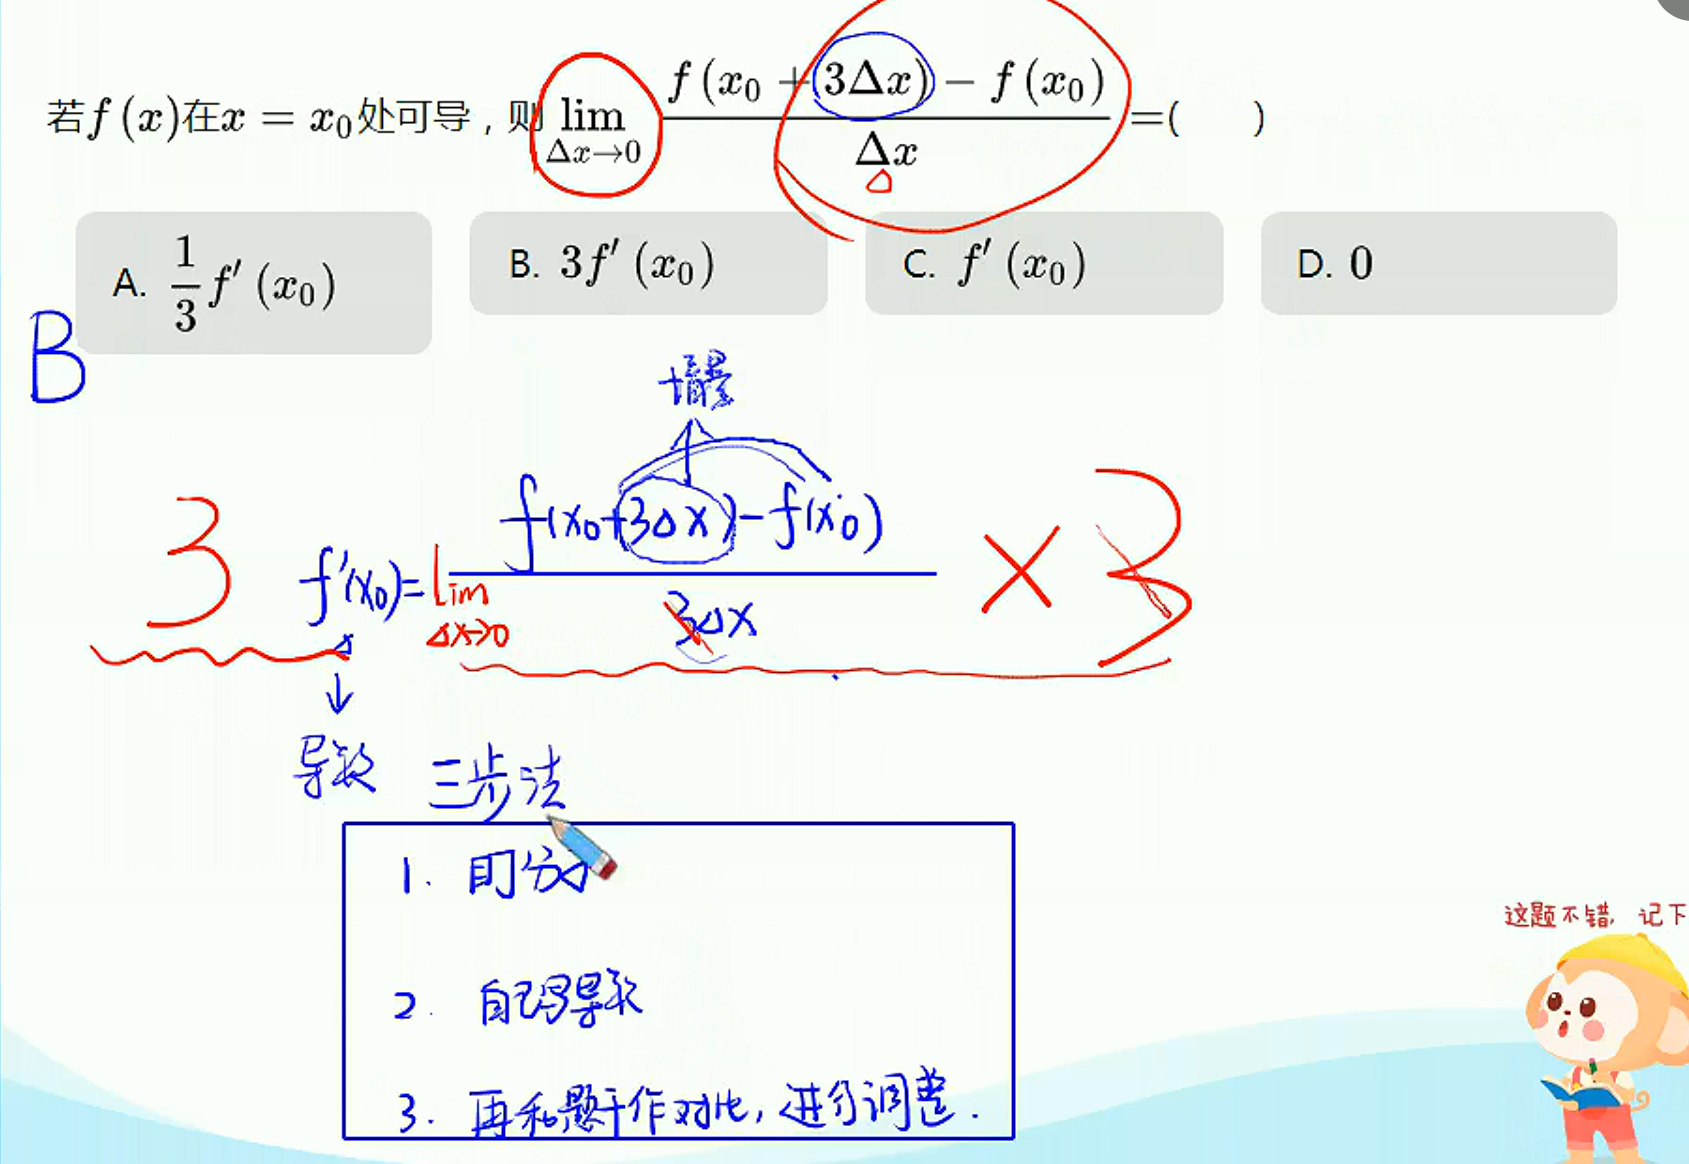 若f(x)在x = x₀处可导，则 lim_{Δx→0} \frac{f(x₀ + 3Δx) − f(x₀)}{Δx} =(　　)
A. \frac{1}{3}f′(x₀)　B. 3f′(x₀)　C. f′(x₀)　D. 0
B
增量
3 f′(x₀) = lim_{Δx→0} \frac{f(x₀+3Δx)−f(x₀)}{3Δx} × 3
↓
导数　三步法
1. 盯分子
2. 自己写导数
3. 再和题干作对比，进行调整.
这题不错，记下